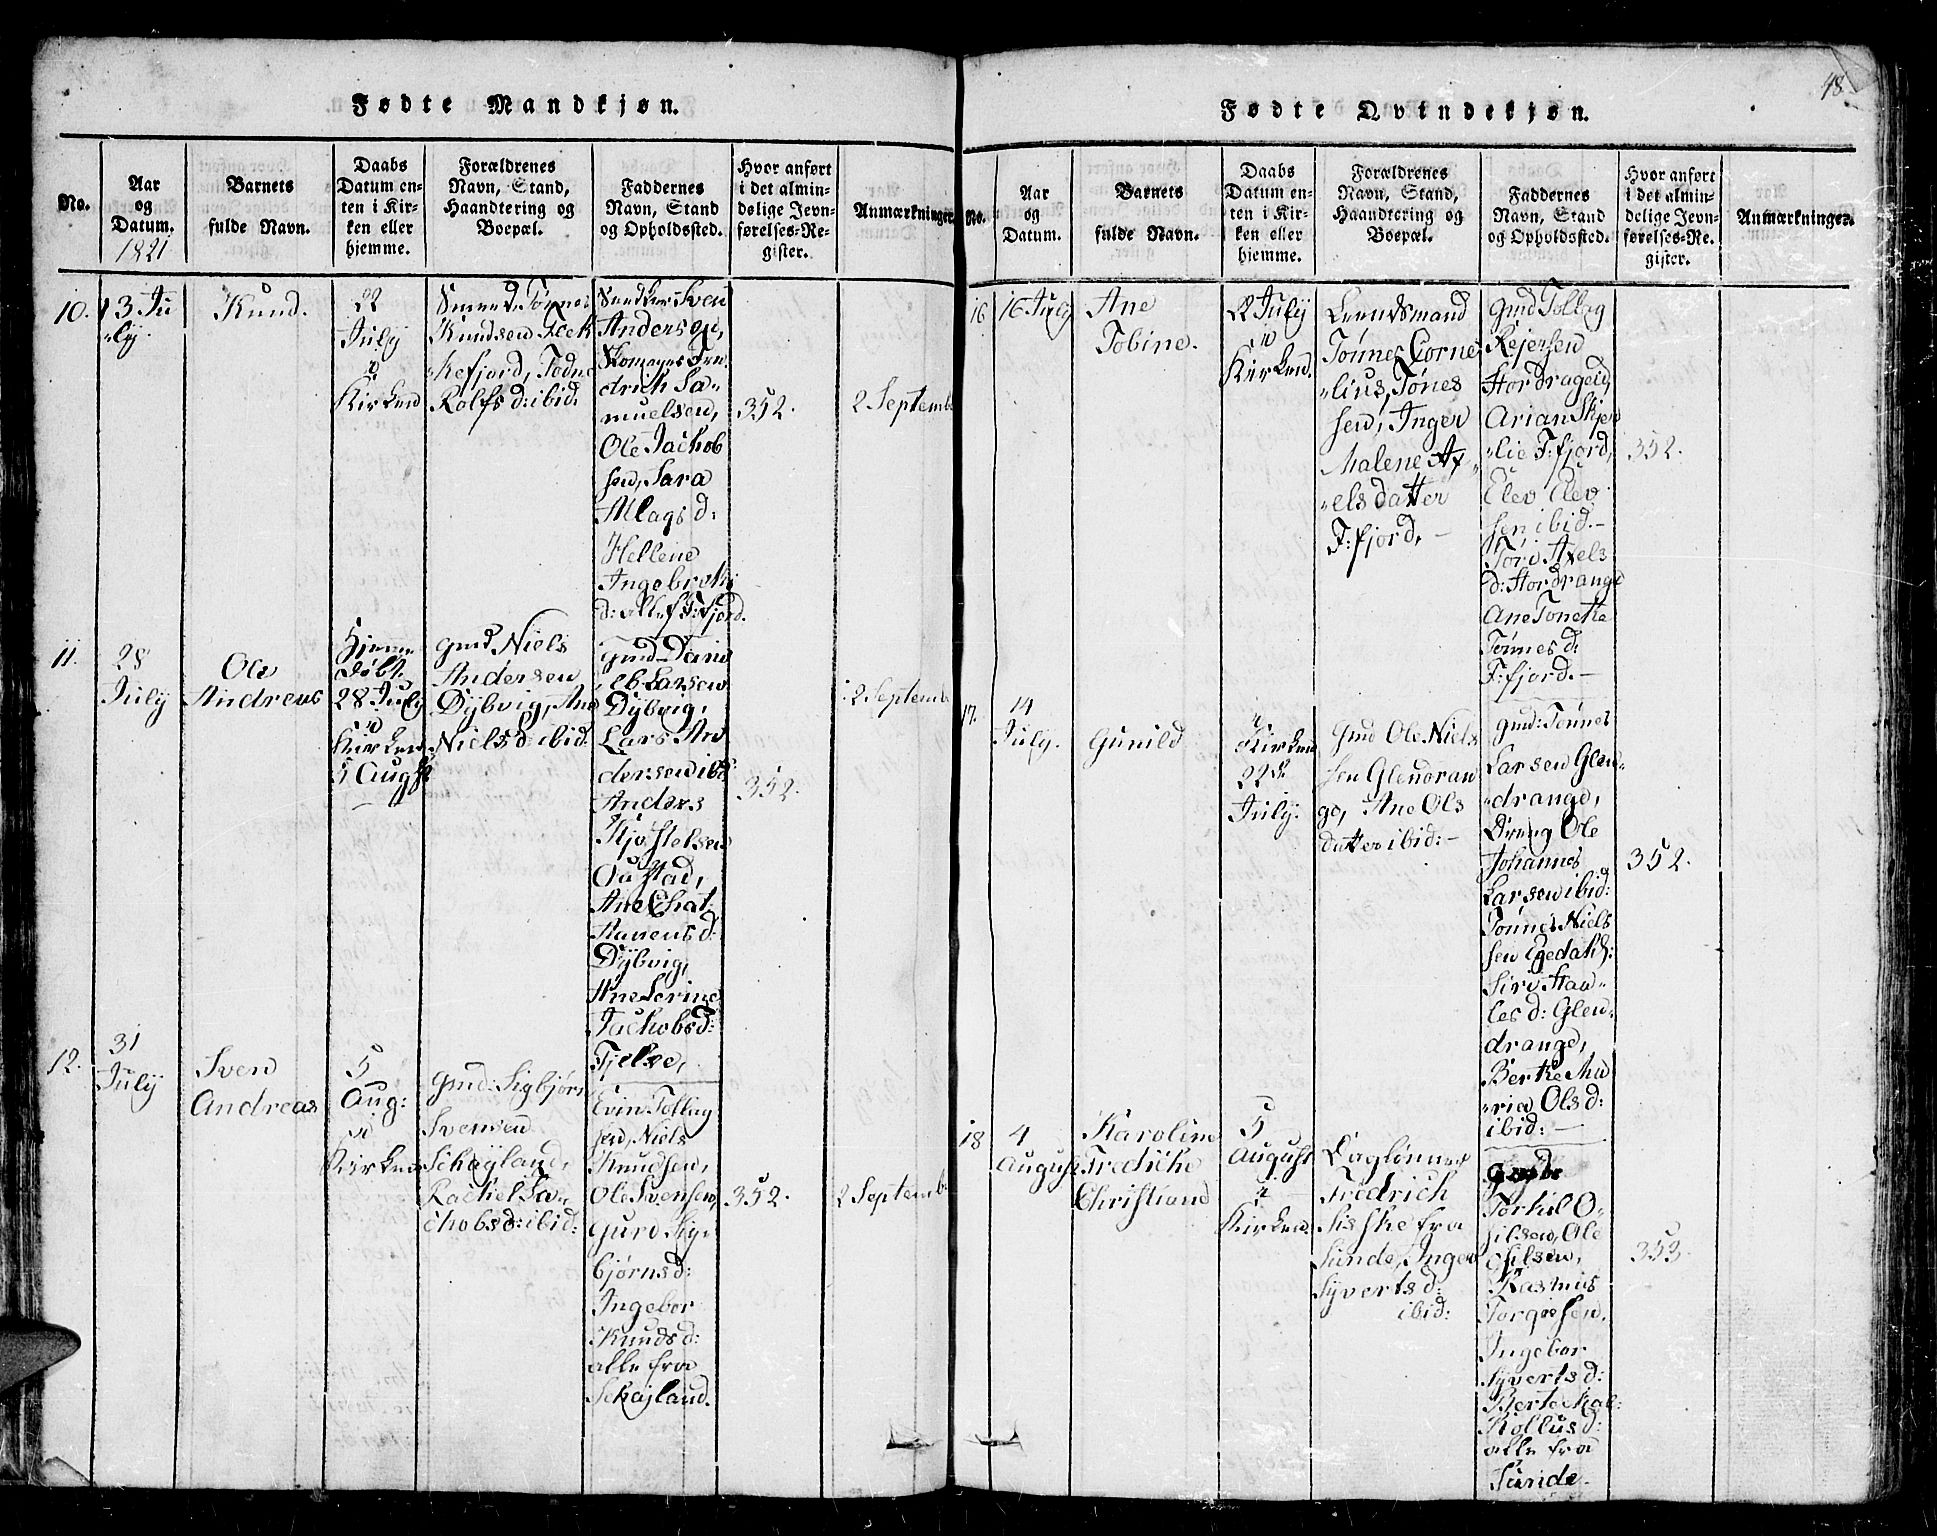 48.
Fødte Mandkjøn.
No.
Aar
og
Datum.
1821
Barnets
fulde Navn.
Daabs
Datum en-
ten i Kir-
ken eller
hjemme.
Forældrenes
Navn, Stand,
Haandtering og
Boepæl.
Faddernes
Navn, Stand
og Opholdssted.
Hvor anført
i det almin-
delige Jevn-
førelses-Re-
gister.
Anmærkninger.
10.
13 Ju
"ly.
Knud.
22
July
i
Kirken
Tønnes
Knudsen
"kefjord, Todne
Rolfs d: ibid.
Sven
Andersen,
drich Sa-
muelsen,
Ole Jachob
sen, Sara
Allags d:
Hellene
Ingebreths
d: alle f F:fjord.
352.
2 Septemb
11.
28
July
Ole
Andreas
Hjemme
døbt
28 July
i
Kirken
5 Augst
Gmd Niels
Andersen
Dybvig, Ane
Niels d: ibid.
Gmd Dani
el Larsen
Dybvig,
Lars An
dersen ibd:
Anders
Kjøstelsen
Oustad,
Ane Chat:
Ravens d:
Dybvig,
Ane Serine
Jachobs d:
Fjelse,
352.
2 Septemb
12.
31
July
Sven
Andreas
5
Aug:
i
Kirken
Gmd: Sigbjørn
Svensen
Schøyland,
Rachel Ja-
chobs d: ibid:
Evin Tollag
sen, Niels
Knudsen,
Ole Svensen,
Guro Sig-
bjørns d:
Ingebor
Knuds d:
alle fra
Schøjland.
352.
2 Septemb
Fødte Qvindekjøn.
No.
Aar
og
Datum.
Barnets
fulde Navn.
Daabs
Datum en-
ten i Kir-
ken eller
hjemme.
Forældrenes
Navn, Stand,
Haandtering og
Boepæl.
Faddernes
Navn, Stand
og Opholdssted.
Hvor anført
i det almin-
delige Jevn-
førelses-Re-
gister.
Anmærkninger.
16
16 July
Ane
Tobine.
22 July
i
Kirken.
Leensmand
Tønnes Corne
"lius, Tønes
sen, Inger
Malene Ax"
"elsdatter
F:fjord. -
Gmd Tollag
Rejersen
Stordrageig
Arian Skjer
"lie F:fjord,
Elev Elev
sen, ibid. -
Tore Axels
d: Stordrange
Ane Tonetta
Tønnes d:
F:fjord. -
352.
17.
14
July.
Gunild
i
Kirken
22de
July.
Gmd Ole Niels
sen Glendran
ge, Ane Ols
datter ibid: -
Gmd: Tønnes
Larsen Glen"
"drange,
Dreng Ole
Johannes
Larsen ibid:
Tønnes Niels
sen Egedahl:
Siri Han-
ses d: Glen-
drange,
Berthe Ma
"ria Ols d:
ibid: -
352.
18
4
August
Karoline
Fredriche
Christiane
5
August
i
Kirken.
Daglønner
Fredrich
Siske fra
Sunde, Inger
Syverts d:
ibid:
Torkel O-
silsen, Ole
Osilsen,
Rasmus
Torgiesen.
Ingebor
Syverts d:
Berte Mal:
Rollus d:
alle fra
Sunde.
353.